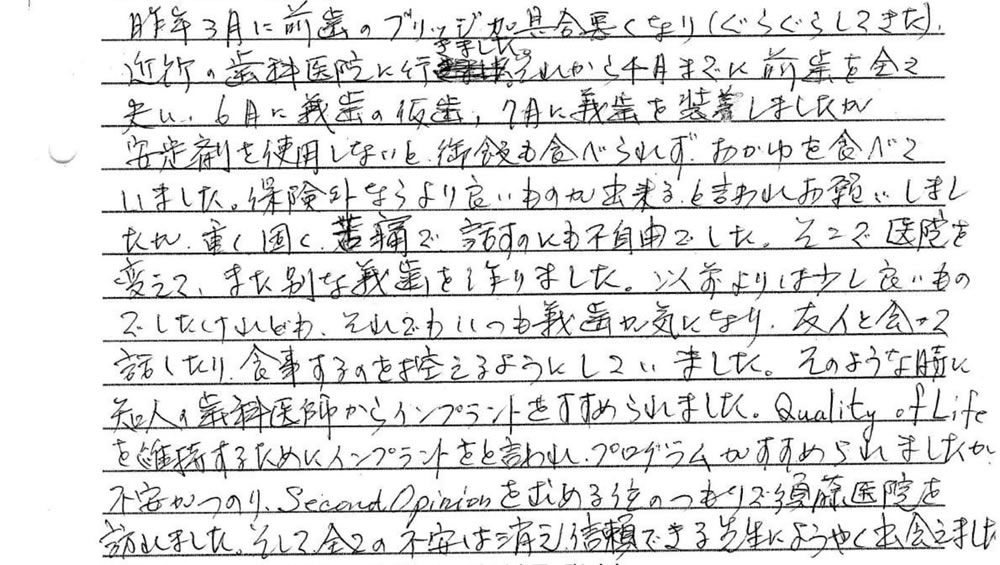 昨年3月に前歯のブリッジが具合悪くなり(ぐらぐらしてきた)、
近所の歯科医院に行きました。それから4月までに前歯を全て
失い、6月に義歯の仮歯、7月に義歯を装着しましたが
安定剤を使用しないと、御飯も食べられず、おかゆを食べて
いました。保険外ならより良いものが出来ると言われお願いしまし
たが、重く固く、苦痛で話すのにも不自由でした。そこで医院を
変えて、また別な義歯を作りました。以前よりは少し良いもの
でしたけれども、それでもいつも義歯が気になり、友人と会って
話したり、食事するのを控えるようにしていました。そのような時に
知人の歯科医師からインプラントをすすめられました。Quality of Life
を維持するためにインプラントをと言われ、プログラムがすすめられましたが、
不安がつのり、Second Opinionを求める位のつもりで須藤医院を
訪れました。そして全ての不安は消え、信頼できる先生にようやく出会えました